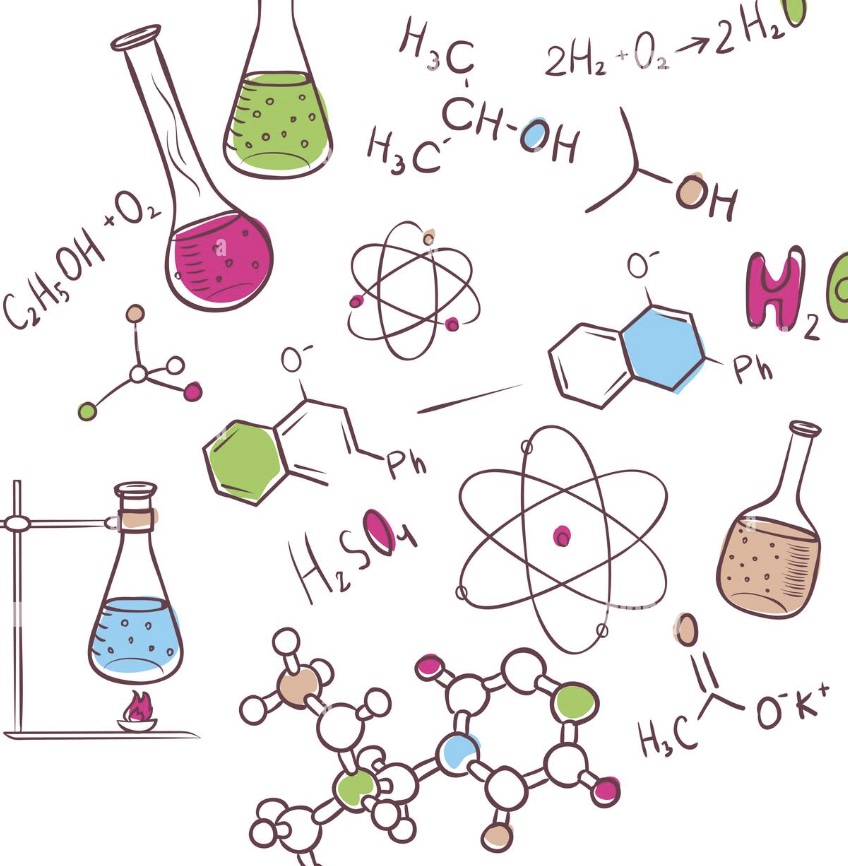 H₃C
CH-OH
H₃C
2H₂+O₂→2H₂O
OH
C₂H₅OH+O₂
O⁻
Ph
H₂O
O⁻
Ph
H₂SO₄
O
H₃C
O⁻K⁺
a
a
a
a